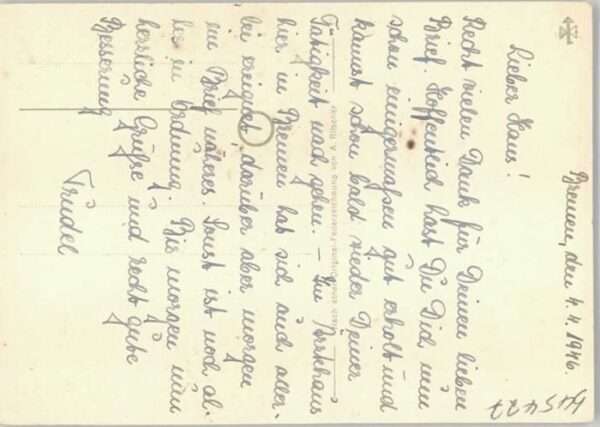 Bremen, den 4. 4. 1946.
Lieber Hans!
Recht vielen Dank für Deinen lieben
Brief. Hoffentlich hast Du Dich nun
schon einigermaßen gut erholt und
kannst schon bald wieder Deiner
Tätigkeit nachgehen. – Im
hier in Bremen hat sich auch aller-
lei ereignet, darüber aber morgen
im Brief näheres. Sonst ist noch al-
les in Ordnung. Bis morgen nun
herzliche Grüße und recht gute
Besserung
Trudel
4454727